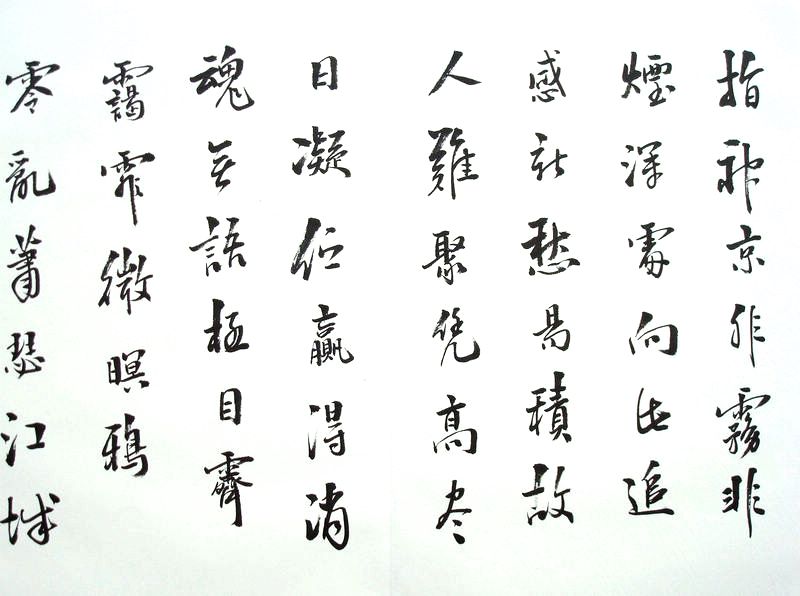 指神京非霧非
煙深處向此追
感新愁易積故
人難聚凭高尽
日凝佇贏得消
魂無語極目霽
靄霏微暝鴉
零亂蕭瑟江城